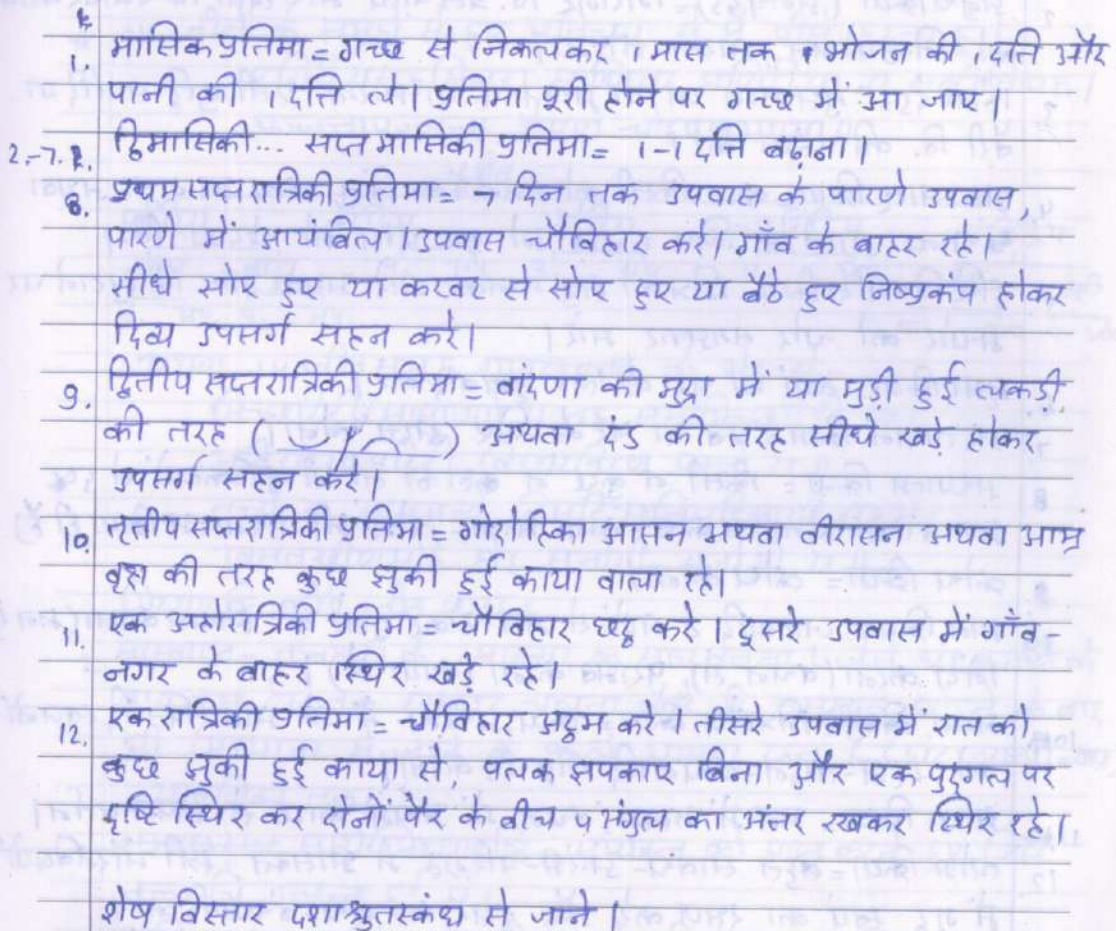 1. मासिक प्रतिमा = गच्छ से निकलकर 1 मास तक भोजन की 1 दत्ति और
पानी की 1 दत्ति ले। प्रतिमा पूरी होने पर गच्छ में आ जाए।
2.-7. द्विमासिकी... सप्तमासिकी प्रतिमा = 1-1 दत्ति बढ़ाना।
8. प्रथम सप्तरात्रिकी प्रतिमा = 7 दिन तक उपवास के पारणे उपवास,
पारणे में आयंबिल। उपवास चौविहार करे। गाँव के बाहर रहे।
सीधे सोए हुए या करवट से सोए हुए या बैठे हुए निष्प्रकंप होकर
दिव्य उपसर्ग सहन करे।
9. द्वितीय सप्तरात्रिकी प्रतिमा = वांदणा की मुद्रा में या मुड़ी हुई लकड़ी
की तरह ( ) अथवा दंड की तरह सीधे खड़े होकर
उपसर्ग सहन करे।
10. तृतीय सप्तरात्रिकी प्रतिमा = गोदोहिका आसन अथवा वीरासन अथवा आम्र
वृक्ष की तरह कुछ झुकी हुई काया वाला रहे।
11. एक अहोरात्रिकी प्रतिमा = चौविहार छट्ठ करे। दूसरे उपवास में गाँव-
नगर के बाहर स्थिर खड़े रहे।
12. एक रात्रिकी प्रतिमा = चौविहार अट्ठम करे। तीसरे उपवास में रात को
कुछ झुकी हुई काया से, पलक झपकाए बिना और एक पुद्गल पर
दृष्टि स्थिर कर दोनों पैर के बीच 4 अंगुल का अंतर रखकर स्थिर रहे।
शेष विस्तार दशाश्रुतस्कंध से जाने।